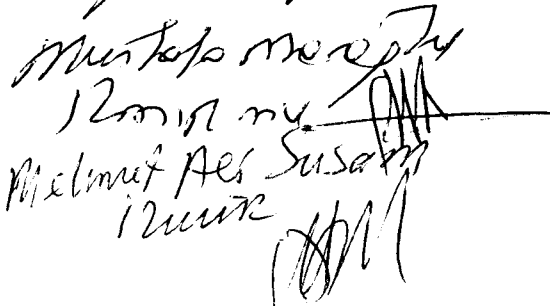 Mustafa Moroğlu
İzmir mv
Mehmet Ali Susam
İzmir